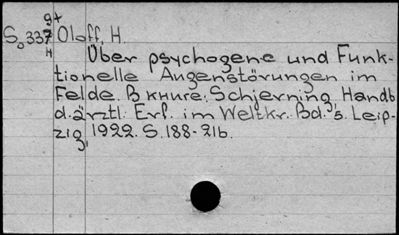 9+
S₀337 Oloff, H
H
Über psychogene und Funk-
tionelle Augenstörungen im
Felde. В книге: Schjerning, Handb
d. ärztl. Erf. im Weltkr. Bd. 5. Leip-
zig, 1922. S. 188-216.